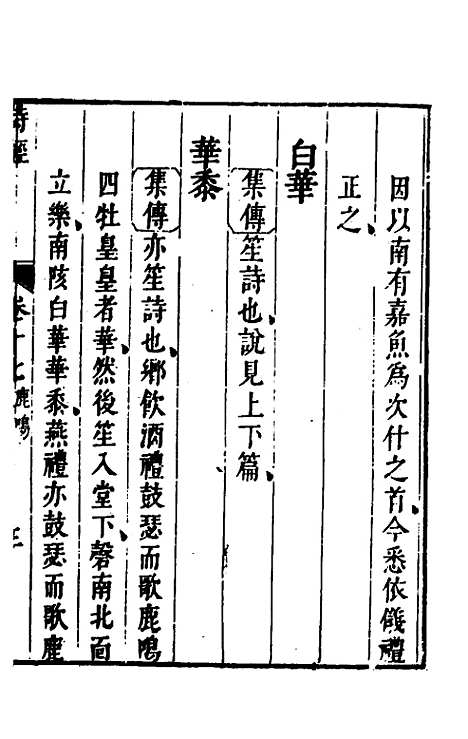 因以南有嘉魚為次什之首今悉依儀禮
正之
白華
集傳笙詩也說見上下篇
華黍
集傳亦笙詩也鄉飲酒禮鼓瑟而歌鹿鳴
四牡皇皇者華然後笙入堂下磬南北面
立樂南陔白華華黍燕禮亦鼓瑟而歌鹿
詩經 卷十七鹿鳴 三